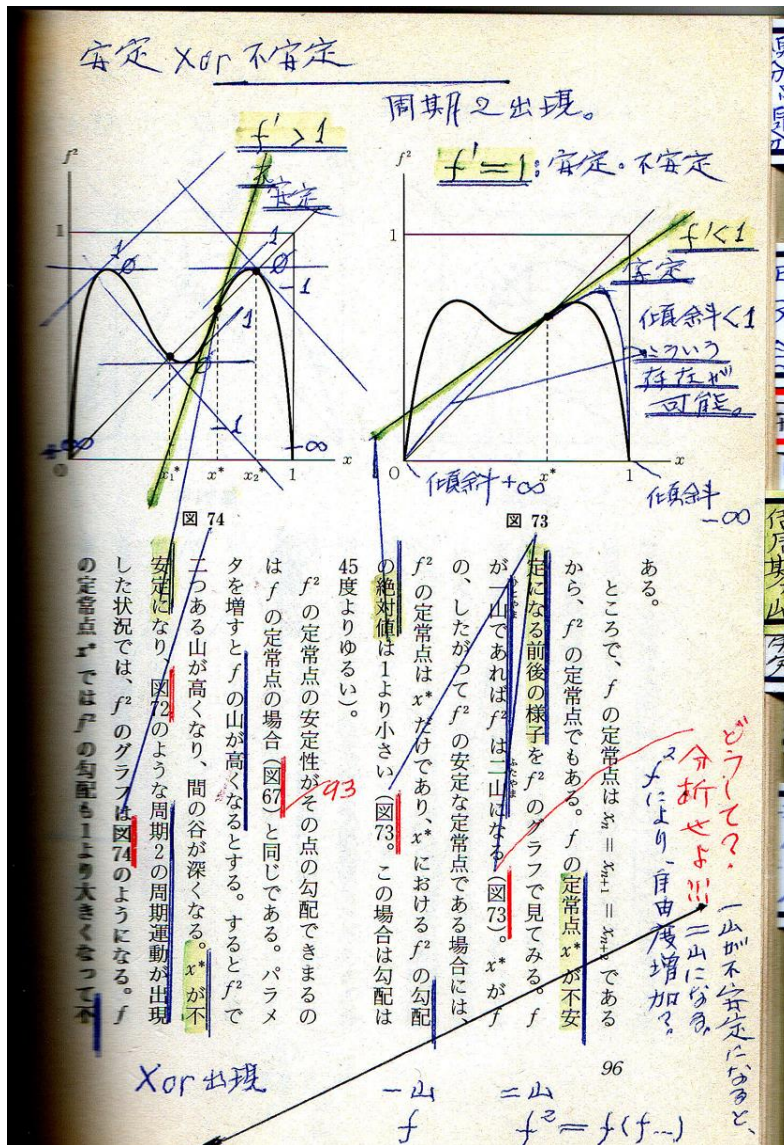 安定 Xor 不安定
周期2出現。
f' > 1
不
安定
f' = 1 : 安定。不安定
f' < 1
安定
傾斜 < 1
こういう
存在が
可能。
f²
1
1
φ
φ
1
-1
1
φ
-1
+∞
-∞
0
x₁*
x*
x₂*
1
x
f²
1
0
x*
1
x
傾斜 +∞
傾斜
-∞
図 74
図 73
ある。
ところで、f の定常点は xₙ = xₙ₊₁ = xₙ₊₂ である
から、f² の定常点でもある。f の定常点 x* が不安
定になる前後の様子を f² のグラフで見てみる。f
が一山であれば f² は二山になる(図73)。x* が f
ひとやま
ふたやま
の、したがって f² の安定な定常点である場合には、
f² の定常点は x* だけであり、x* における f² の勾配
の絶対値は1より小さい(図73。この場合は勾配は
45度よりゆるい)。
f² の定常点の安定性がその点の勾配できまるの
は f の定常点の場合(図67)と同じである。パラメ
タを増すと f の山が高くなるとする。すると f² で
二つある山が高くなり、間の谷が深くなる。x* が不
安定になり、図72のような周期2の周期運動が出現
した状況では、f² のグラフは図74のようになる。f
の定常点 x* では f² の勾配も1より大きくなって不
93
どうして?
分析せよ!!!
一山が不安定になると、
二山になる。
f² により、自由度増加?
96
Xor 出現
一山
二山
f
f² = f(f…)